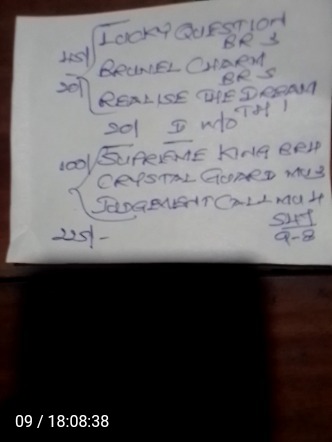 LUCKY QUESTION
BR 3
25/- BRUNEL CHARM
BR 5
20/ REALISE THE DREAM
TH 1
20/ I n/o
100/ SUPREME KING BR4
CRYSTAL GUARD MU3
JUDGEMENT CALL MU4
9-8
225/-
09 / 18:08:38